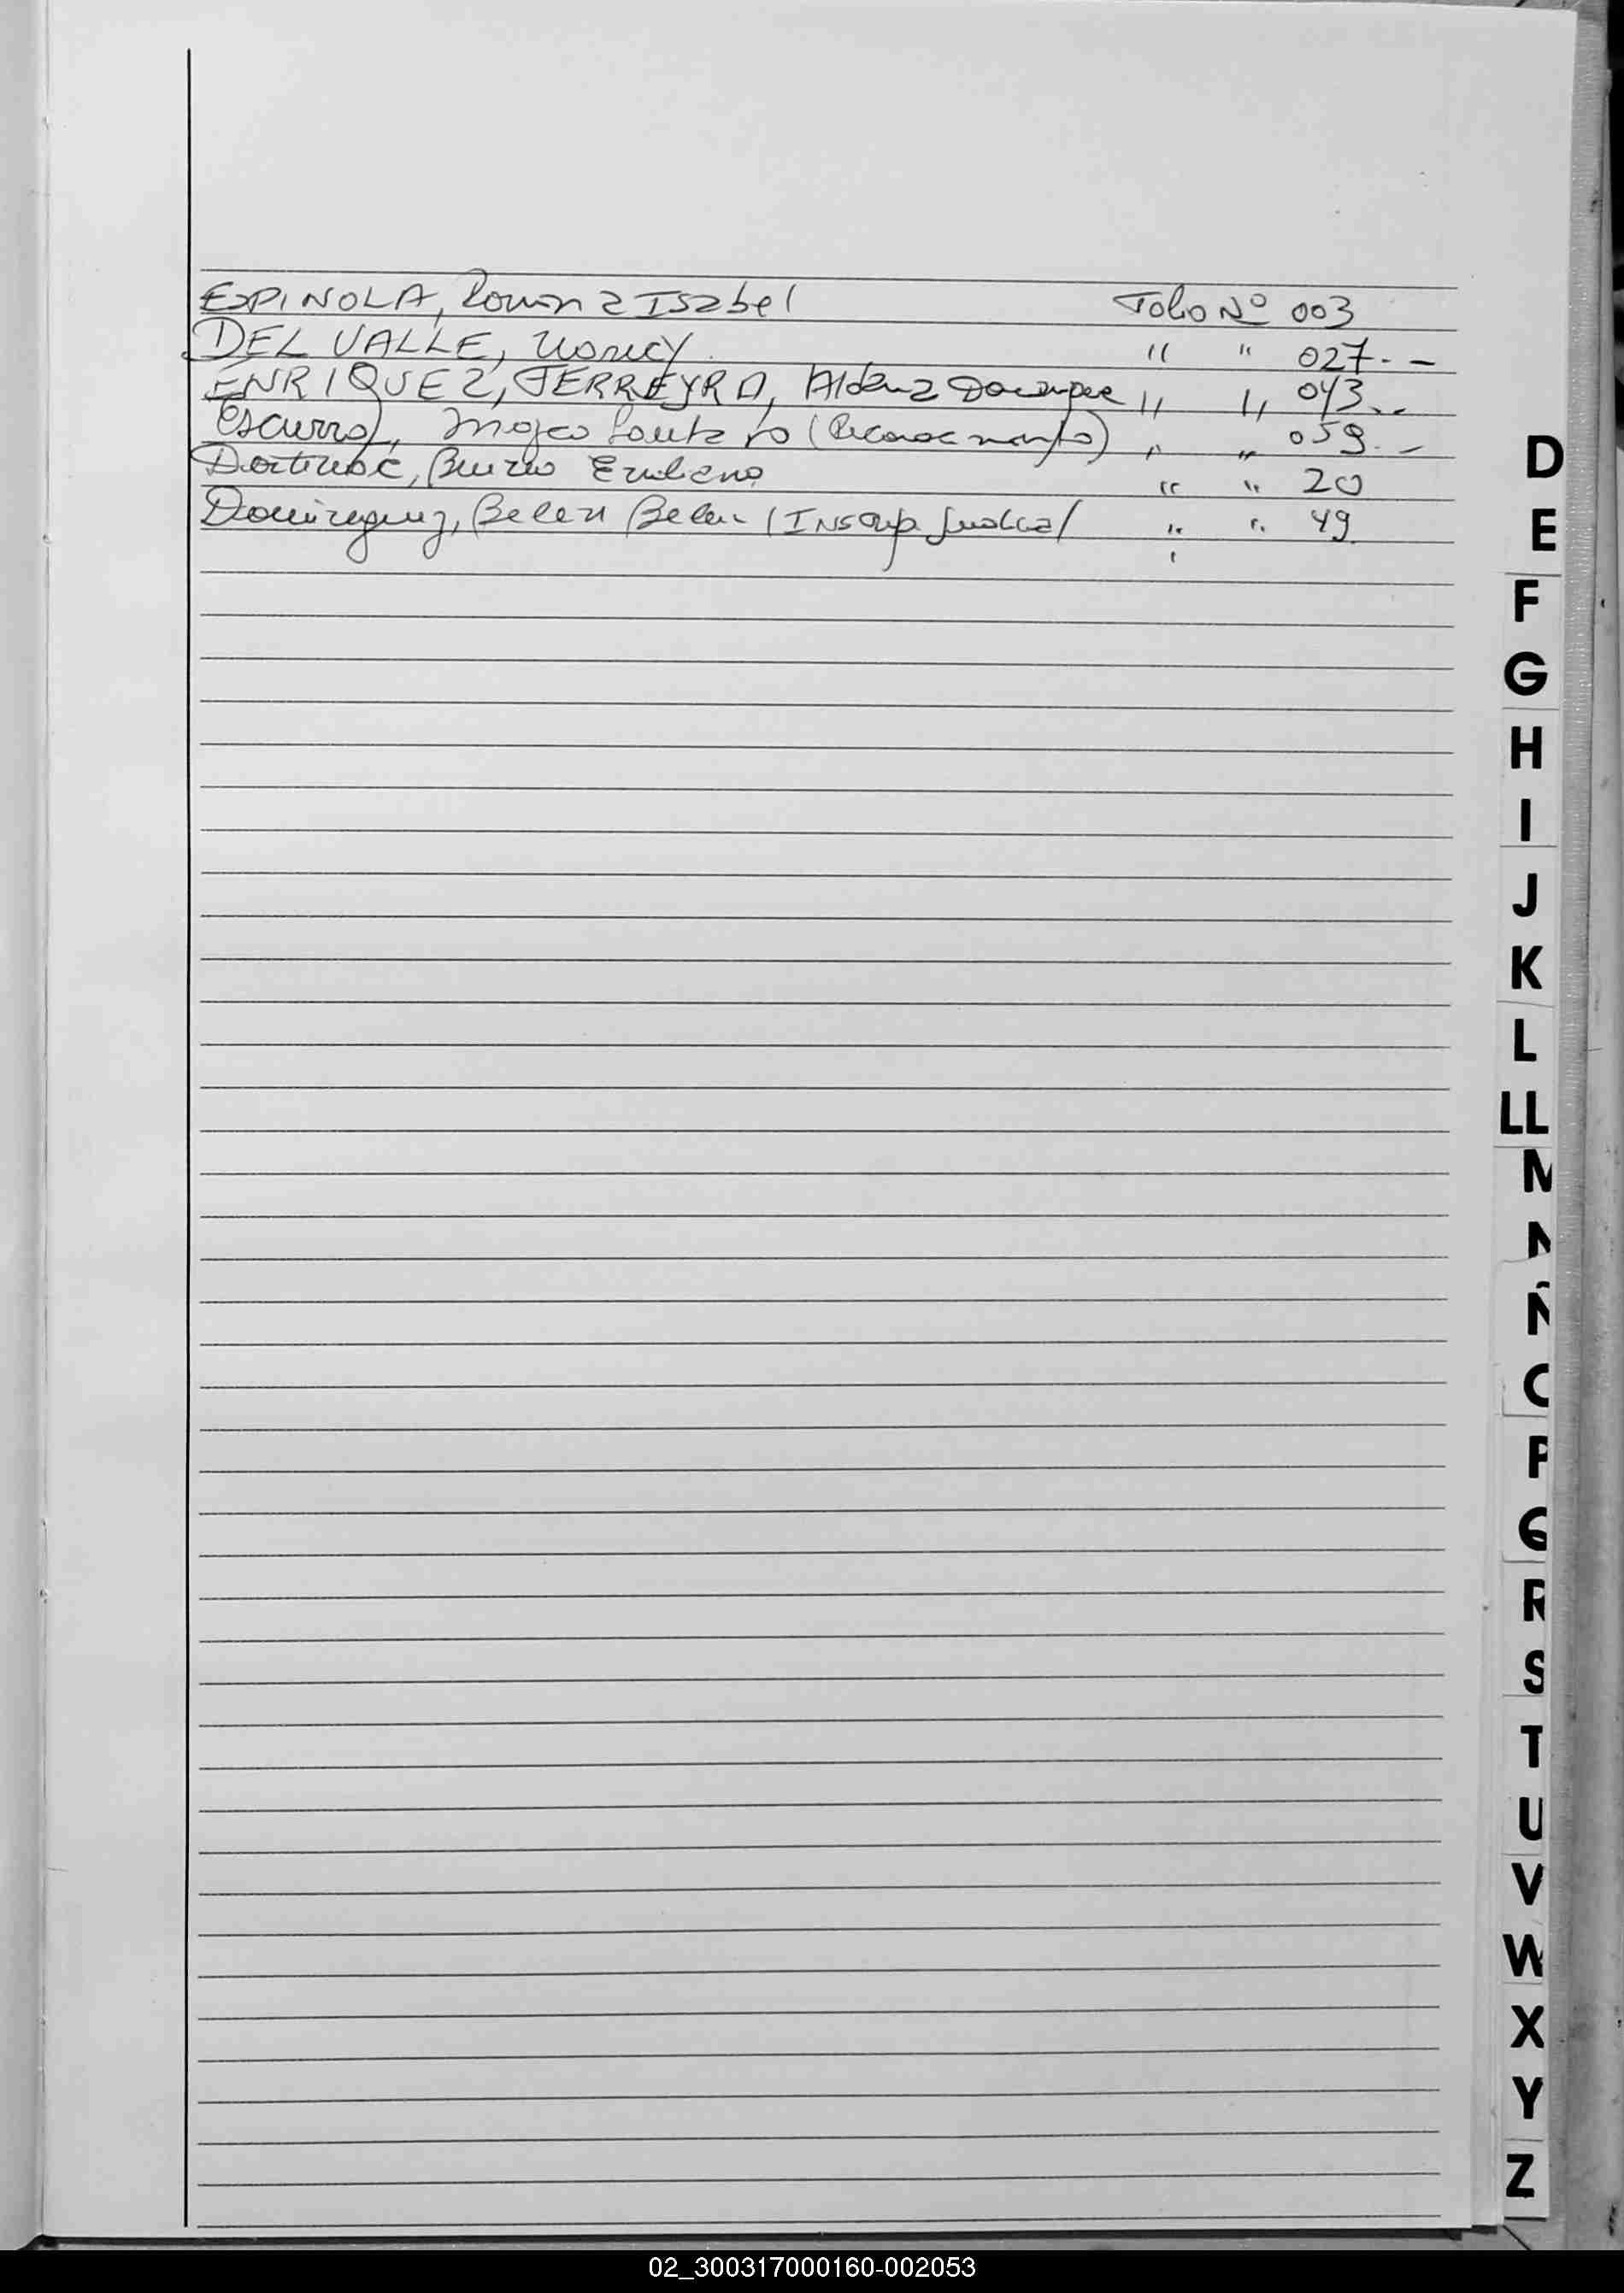 ESPINOLA, Romina Isabel Folio Nº 003
DEL VALLE, Nancy. " " 027.-
ENRIQUEZ, FERREYRA, Aldana " " 043.-
Escurra, (Reconocimiento) " " 059.-
Emiliano " " 20
Dominguez, Belen Belen (Inscrip. Judicial " " 49
D
E
F
G
H
I
J
K
L
LL
M
N
Ñ
O
P
Q
R
S
T
U
V
W
X
Y
Z
02_300317000160-002053